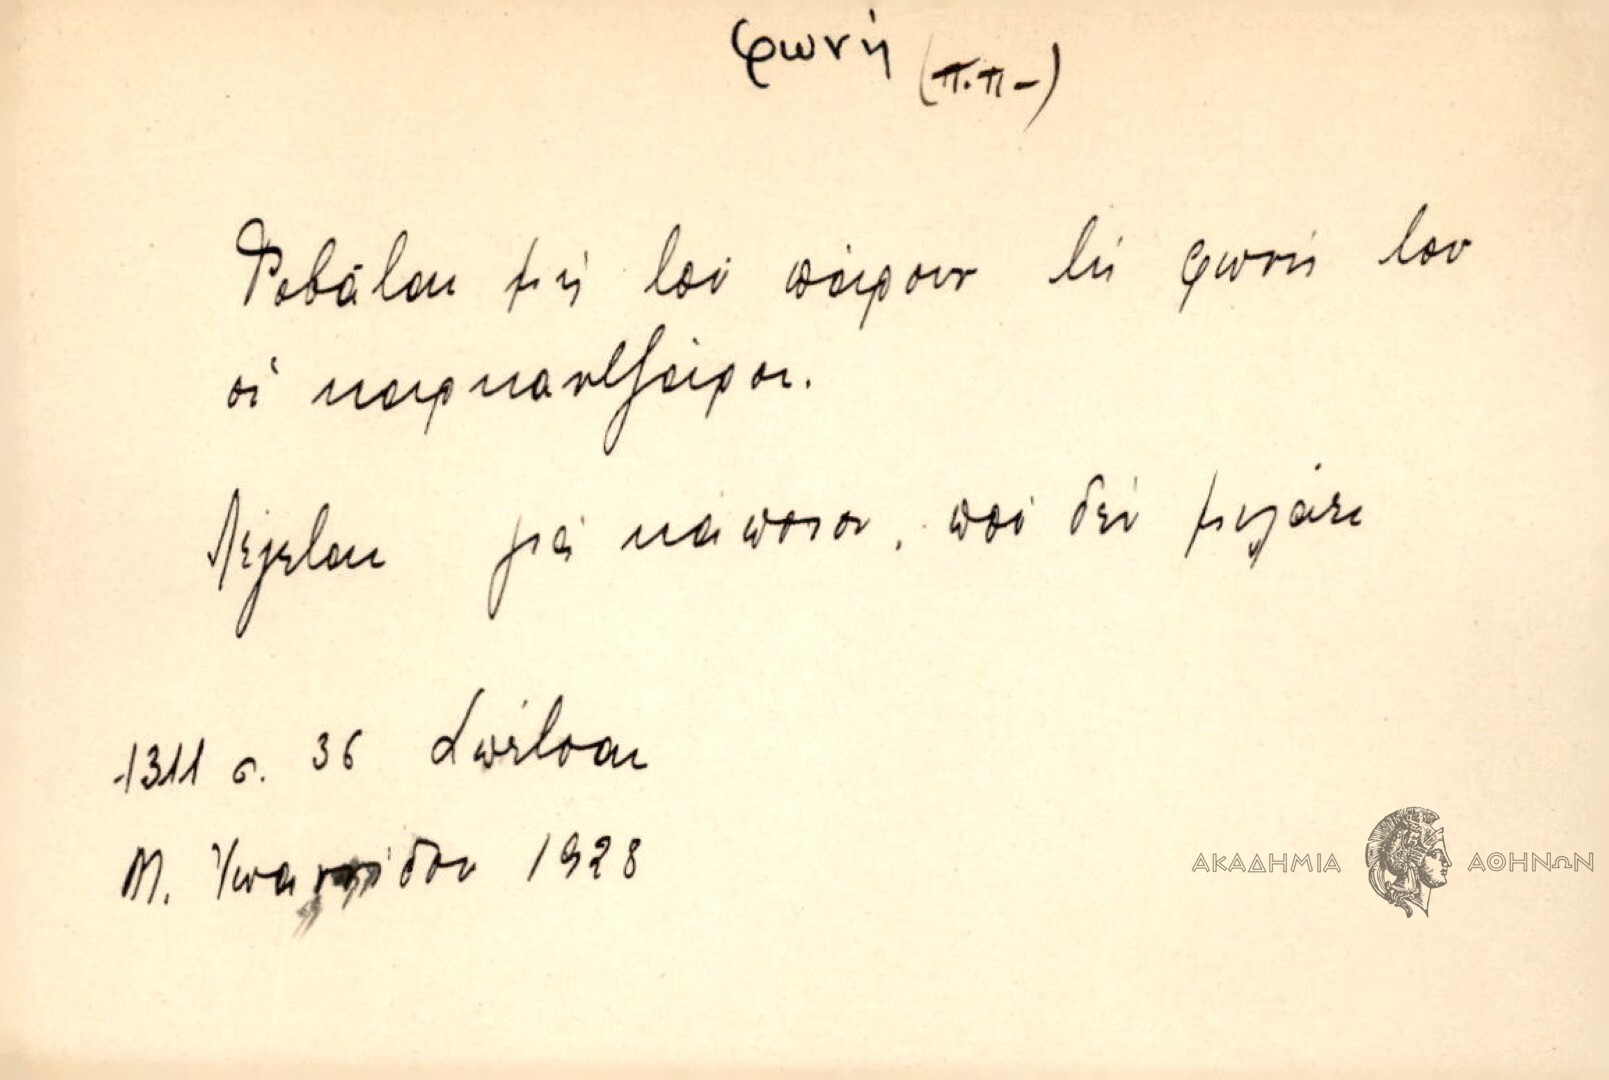 φωνή (π.π-)
Φοβᾶται μή τοῦ πάρουν τή φωνή του
οἱ καρκαντζάροι.
Λέγεται γιά κάποιον, πού δέν μιλάει
1311 σ. 36 Σπέτσαι
Μ. Ἰωαννίδου 1928
ΑΚΑΔΗΜΙΑ ΑΘΗΝΩΝ